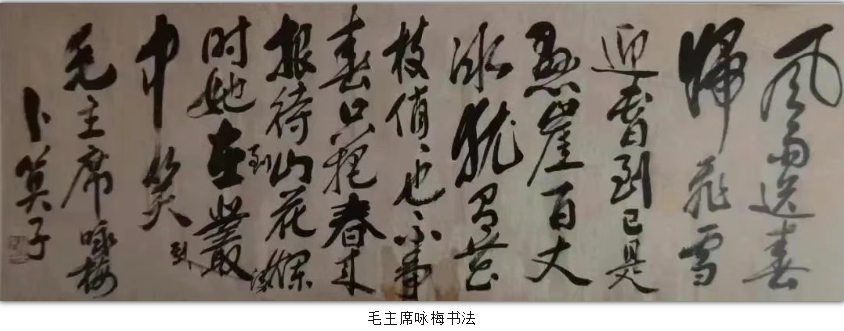 风雨送春
歸飛雪
迎春到已是
悬崖百丈
冰犹有花
枝俏也不争
春只把春来
报待到山花烂漫
时她在叢
中笑
毛主席咏梅
卜算子
毛主席咏梅书法